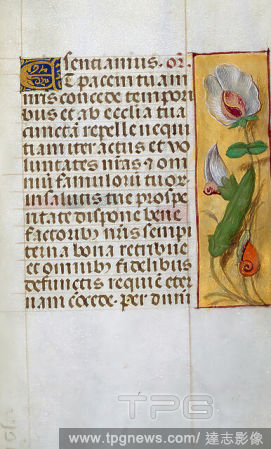 sentiamus. or.
Et pacem tuam
nris concede tempori
bus et ab ecclia tua
cunctam repelle nequi
tiam iter actus et vo
luntates nras & omi
um famulorum tuor
in salutis tue prospe
ritate dispone bene
factorib; nris sempi
terna bona retribue
et omnib; fidelibus
defunctis requie eter
nam cocede. per dnm
TPG
www.tpgnews.com/ 達志影像